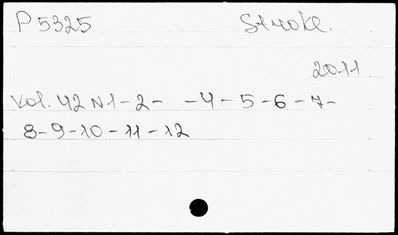 P 5325 Stroke.
2011
Vol. 42 N 1 - 2 - - 4 - 5 - 6 - 7 -
8 - 9 - 10 - 11 - 12